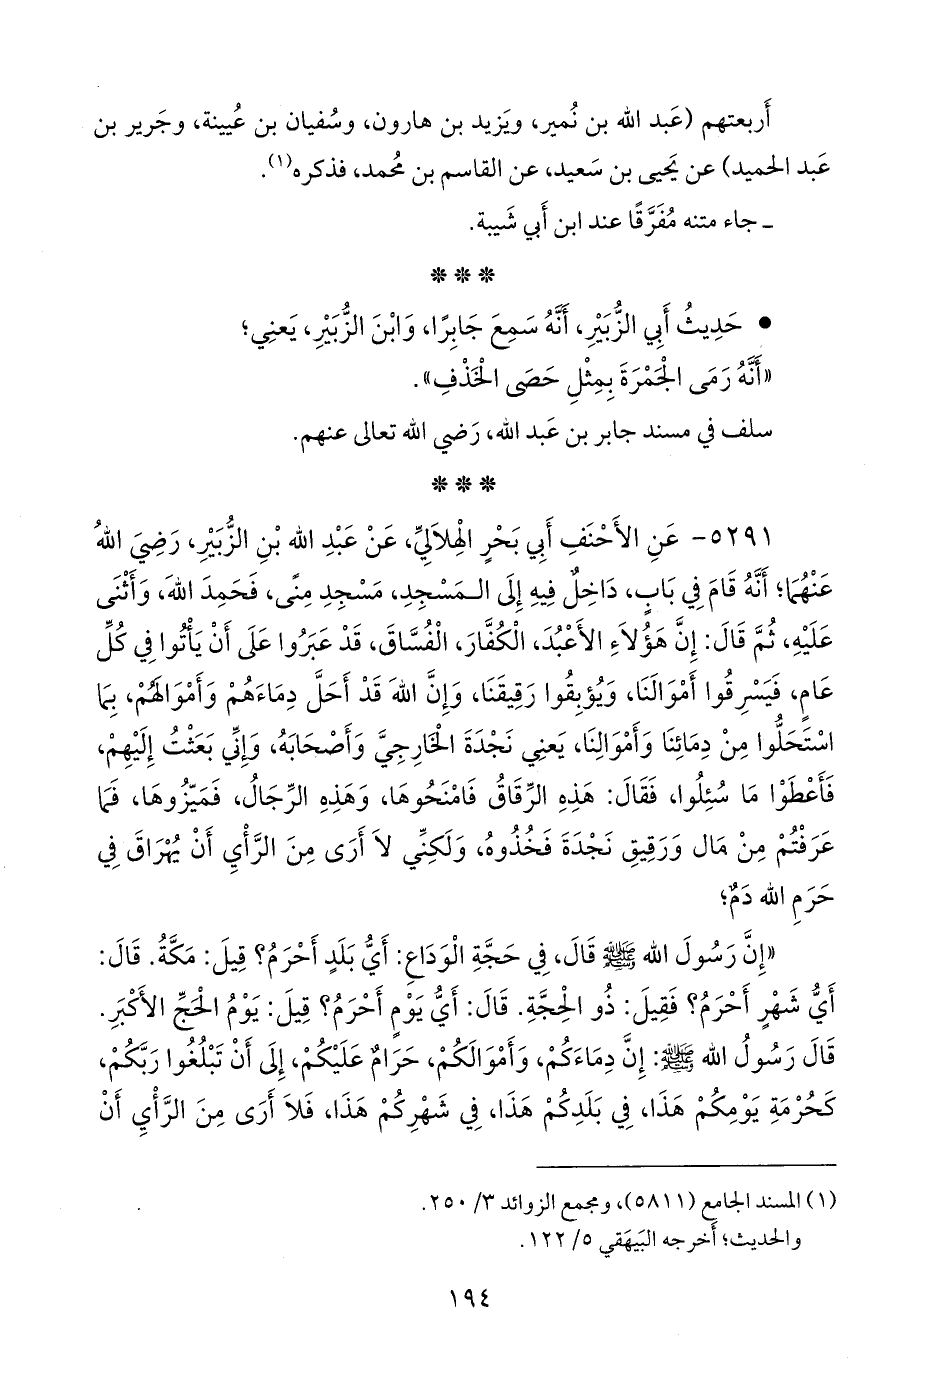 أَربعتهم (عَبد الله بن نُمير، ويَزيد بن هارون، وسُفيان بن عُيينة، وجَرير بن
عَبد الحميد) عن يَحيى بن سَعيد، عن القاسم بن مُحمد، فذكره(١).
ـ جاء متنه مُفَرَّقًا عند ابن أَبي شَيبة.
* * *
• حَدِيثُ أَبِي الزُّبَيْرِ، أَنَّهُ سَمِعَ جَابِرًا، وَابْنَ الزُّبَيْرِ، يَعنِي؛
«أَنَّهُ رَمَى الْجَمْرَةَ بِمِثْلِ حَصَى الْخَذْفِ».
سلف في مسند جابر بن عَبد الله، رَضي الله تعالى عنهم.
* * *
٥٢٩١- عَنِ الأَحْنَفِ أَبِي بَحْرٍ الْهِلاَلِيِّ، عَنْ عَبْدِ الله بْنِ الزُّبَيْرِ، رَضِيَ اللهُ
عَنْهُمَا؛ أَنَّهُ قَامَ فِي بَابٍ، دَاخِلٌ فِيهِ إِلَى الْـمَسْجِدِ، مَسْجِدِ مِنًى، فَحَمِدَ اللهَ، وَأَثْنَى
عَلَيْهِ، ثُمَّ قَالَ: إِنَّ هَؤُلاَءِ الأَعْبُدَ، الْكُفَّارَ، الْفُسَّاقَ، قَدْ عَبَرُوا عَلَى أَنْ يَأْتُوا فِي كُلِّ
عَامٍ، فَيَسْرِقُوا أَمْوَالَنَا، وَيُؤبِقُوا رَقِيقَنَا، وَإِنَّ اللهَ قَدْ أَحَلَّ دِمَاءَهُمْ وَأَمْوَالَهُمْ، بِمَا
اسْتَحَلُّوا مِنْ دِمَائِنَا وَأَمْوَالِنَا، يَعنِي نَجْدَةَ الْخَارِجِيَّ وَأَصْحَابَهُ، وَإِنِّي بَعَثْتُ إِلَيْهِمْ،
فَأَعْطَوْا مَا سُئِلُوا، فَقَالَ: هَذِهِ الرِّقَاقُ فَامْنَحُوهَا، وَهَذِهِ الرِّجَالُ، فَمَيِّزُوهَا، فَمَا
عَرَفْتُمْ مِنْ مَال وَرَقِيقِ نَجْدَةَ فَخُذُوهُ، وَلَكِنِّي لاَ أَرَى مِنَ الرَّأْيِ أَنْ يُهْرَاقَ فِي
حَرَمِ الله دَمٌ؛
«إِنَّ رَسُولَ الله ﷺ قَالَ، فِي حَجَّةِ الْوَدَاعِ: أَيُّ بَلَدٍ أَحْرَمُ؟ قِيلَ: مَكَّةُ. قَالَ:
أَيُّ شَهْرٍ أَحْرَمُ؟ فَقِيلَ: ذُو الْحِجَّةِ. قَالَ: أَيُّ يَوْمٍ أَحْرَمُ؟ قِيلَ: يَوْمُ الْحَجِّ الأَكْبَرِ.
قَالَ رَسُولُ الله ﷺ: إِنَّ دِمَاءَكُمْ، وَأَمْوَالَكُمْ، حَرَامٌ عَلَيْكُمْ، إِلَى أَنْ تَبْلُغُوا رَبَّكُمْ،
كَحُرْمَةِ يَوْمِكُمْ هَذَا، فِي بَلَدِكُمْ هَذَا، فِي شَهْرِكُمْ هَذَا، فَلاَ أَرَى مِنَ الرَّأْيِ أَنْ
(١) المسند الجامع (٥٨١١)، ومجمع الزوائد ٣/ ٢٥٠.
والحديث؛ أَخرجه البَيهَقي ٥/ ١٢٢.
١٩٤